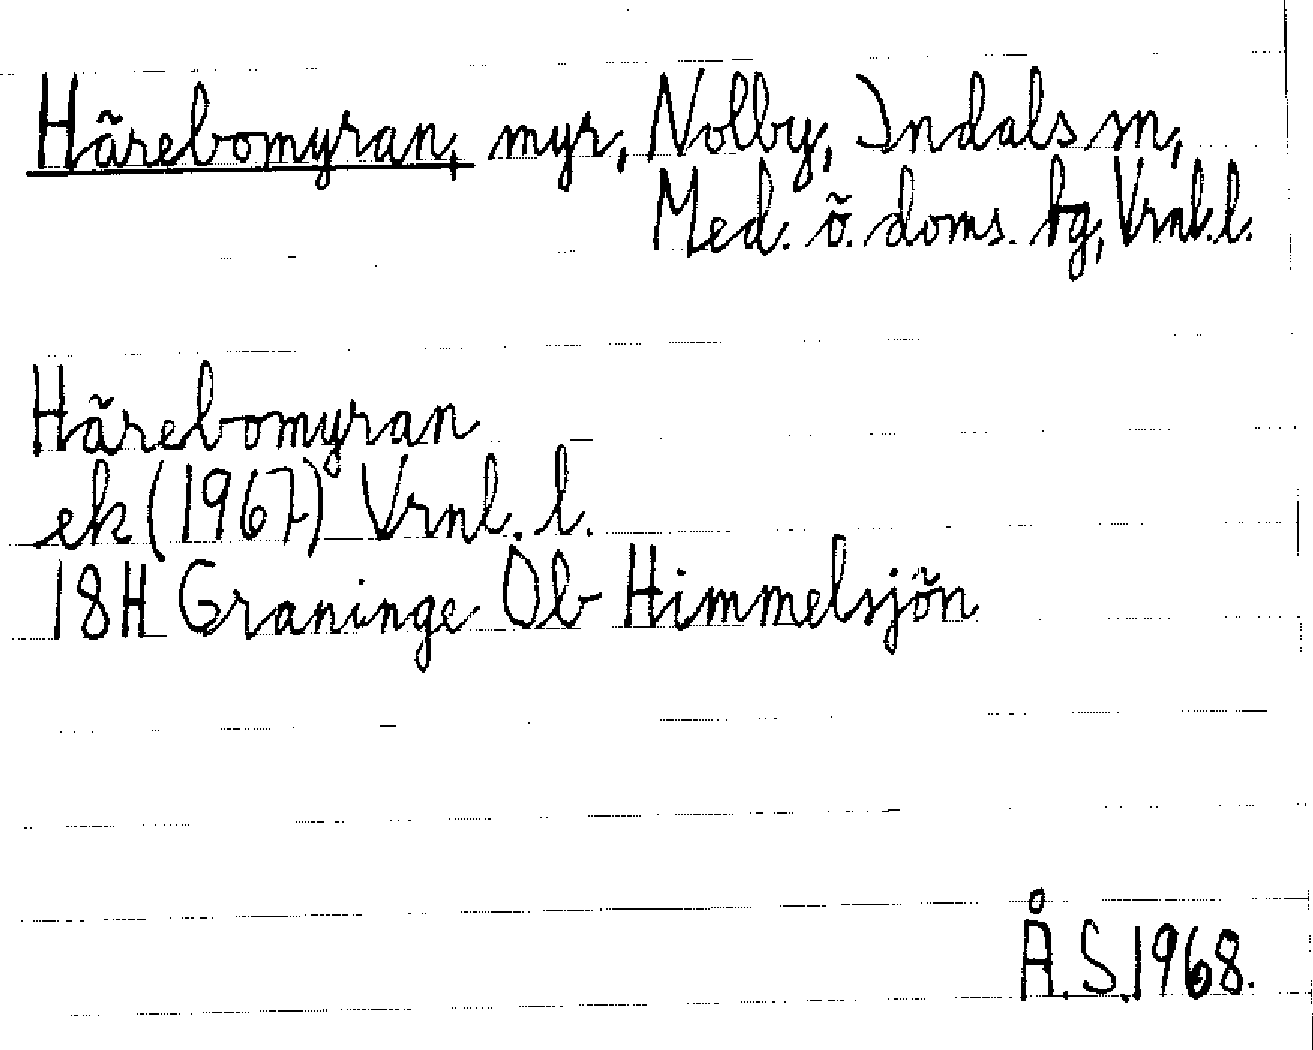 Härebomyran, myr, Nolby, Indals sn,
Med. ö. doms. hg, Vrnl. l.
Härebomyran
ek (1967) Vrnl. l.
18H Graninge Ob Himmelsjön
Å.S. 1968.